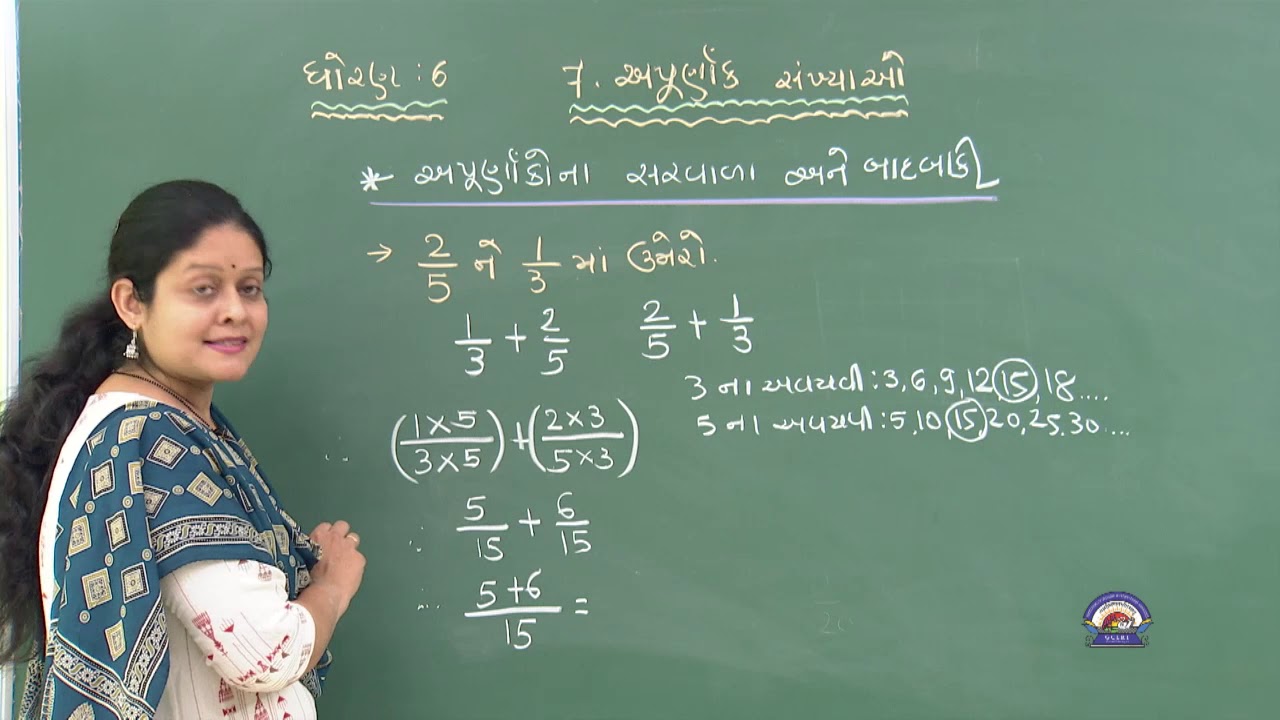 ધોરણ : 6
7. અપૂર્ણાંક સંખ્યાઓ
* અપૂર્ણાંકોના સરવાળા અને બાદબાકી
→ 2/5 ને 1/3 માં ઉમેરો.
1/3 + 2/5    2/5 + 1/3
3 ના અવયવી : 3, 6, 9, 12, 15, 18 ....
5 ના અવયવી : 5, 10, 15, 20, 25, 30 ....
∴ (1×5/3×5) + (2×3/5×3)
∴ 5/15 + 6/15
∴ 5+6/15 =